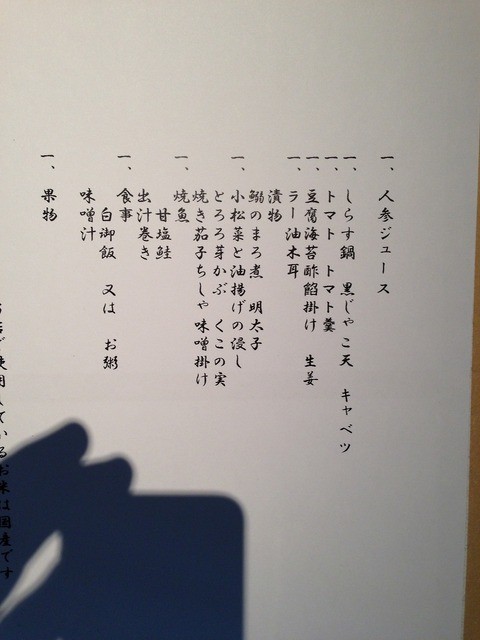 一、人参ジュース
一、しらす鍋　黒じゃこ天　キャベツ
一、トマト　トマト羹
一、豆腐海苔酢餡掛け　生姜
一、ラー油木耳
漬物
鰯のまろ煮　明太子
一、小松菜と油揚げの浸し
とろろ芽かぶ　くこの実
焼き茄子ちしゃ味噌掛け
一、焼魚
甘塩鮭
出汁巻き
一、食事
白御飯　又は　お粥
味噌汁
一、果物
で使用しているお米は国産です